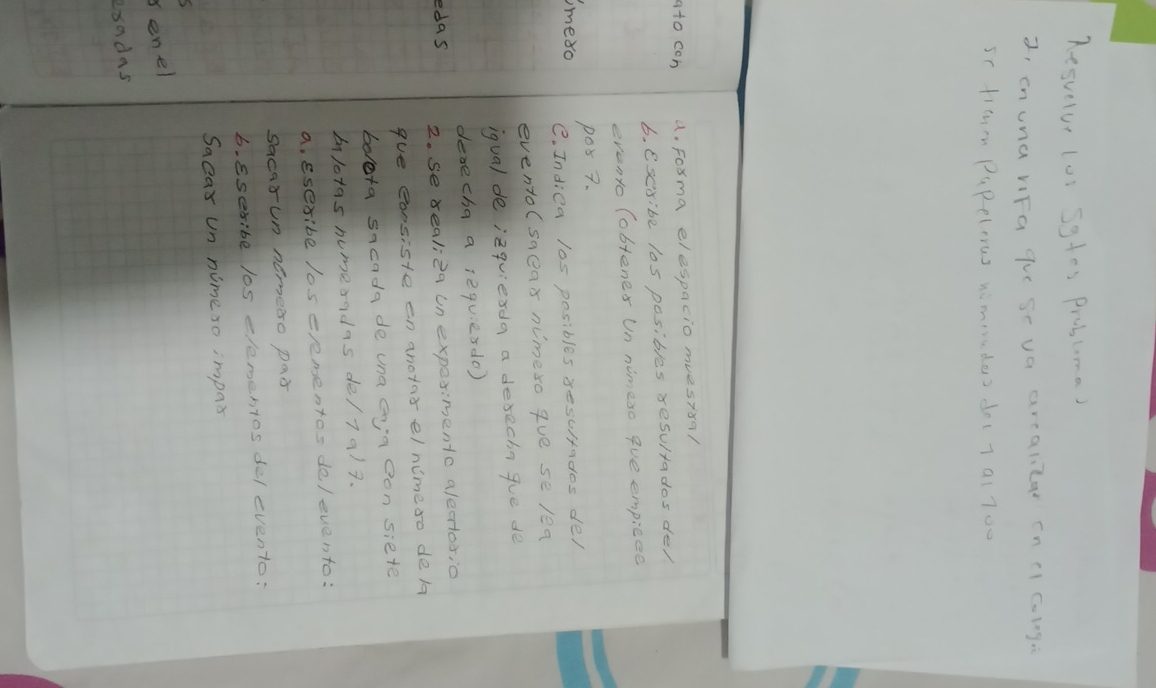 Resuelve los sgtes problemas
1. en una rifa que se va arealizar en el colegi
se tienen papeleras numerados del 1 al 100
a. Forma el espacio muestral
b. Escribe los posibles resultados del
evento (obtener un número que empiece
por 7.
C. Indica los posibles resultados del
evento (sacar número que se lea
igual de izquierda a derecha que de
derecha a izquierdo)
2. se realiza un experimento aleatorio
que consiste en anotar el número de la
bolota sacada de una caja con siete
balotas numeradas del 1 al 7.
a. Escribe los elementos del evento:
sacar un número par
b. Escribe los elementos del evento:
Sacar un número impar
ato con
úmero
edas
s
r en el
esadas